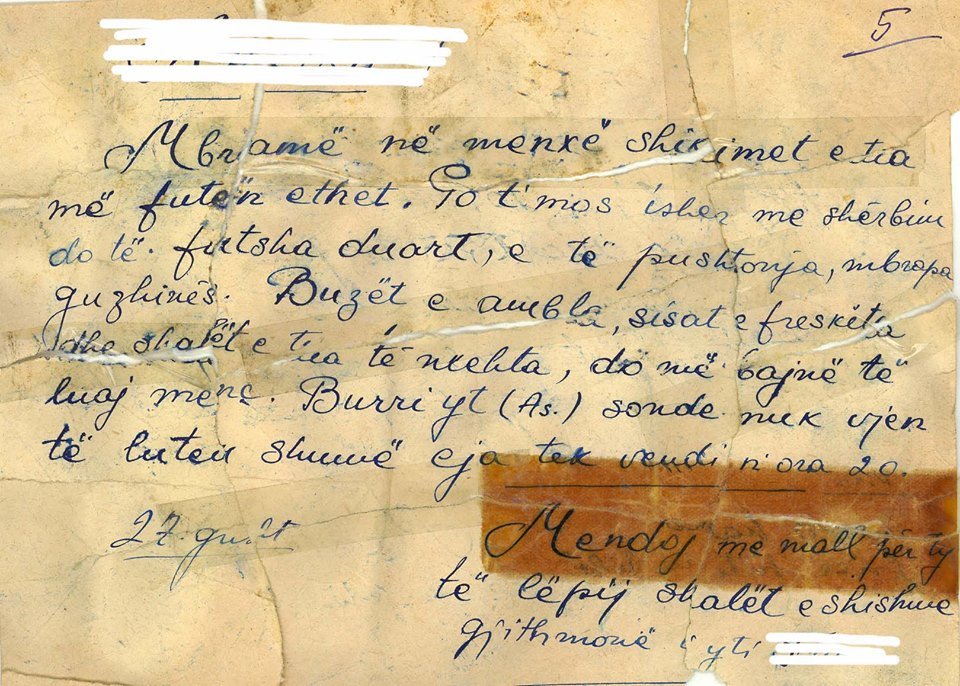 5
Mbramë në menxë shikimet e tua
më futën ethet. Po t'mos isher me shërbim
do të futsha duart, e të pushtonja, mbrapa
guzhinës. Buzët e ambla, sisat e freskëta
dhe shalët e tua të nxehta, do më bajnë të
luaj menç. Burri yt (As.) sonde nuk vjen
të luten shumë eja tek vendi n'ora 20.
27 gusht
Mendoj me mall për ty
të lëpij shalët e shishme
gjithmonë i yti